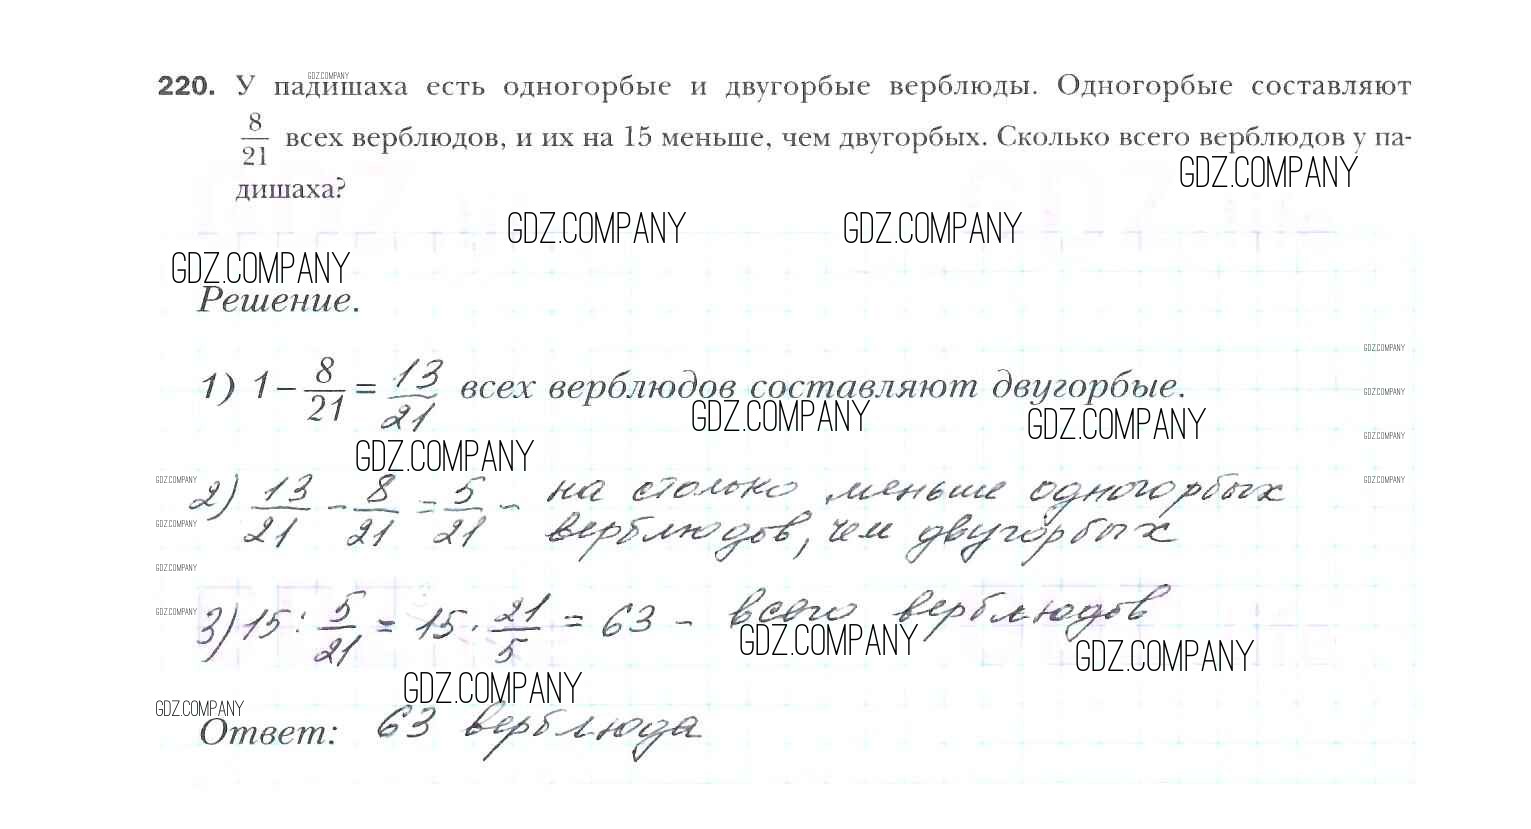 GDZ.COMPANY
220. У падишаха есть одногорбые и двугорбые верблюды. Одногорбые составляют
8/21 всех верблюдов, и их на 15 меньше, чем двугорбых. Сколько всего верблюдов у па-
GDZ.COMPANY
дишаха?
GDZ.COMPANY GDZ.COMPANY
GDZ.COMPANY
Решение.
GDZ.COMPANY
1) 1 − 8/21 = 13/21 всех верблюдов составляют двугорбые.
GDZ.COMPANY
GDZ.COMPANY GDZ.COMPANY
GDZ.COMPANY
GDZ.COMPANY
GDZ.COMPANY GDZ.COMPANY
2) 13/21 − 8/21 = 5/21 − на столько меньше одногорбых
GDZ.COMPANY
верблюдов, чем двугорбых
GDZ.COMPANY
GDZ.COMPANY
3) 15 : 5/21 = 15 · 21/5 = 63 − всего верблюдов
GDZ.COMPANY GDZ.COMPANY
GDZ.COMPANY
GDZ.COMPANY
Ответ: 63 верблюда